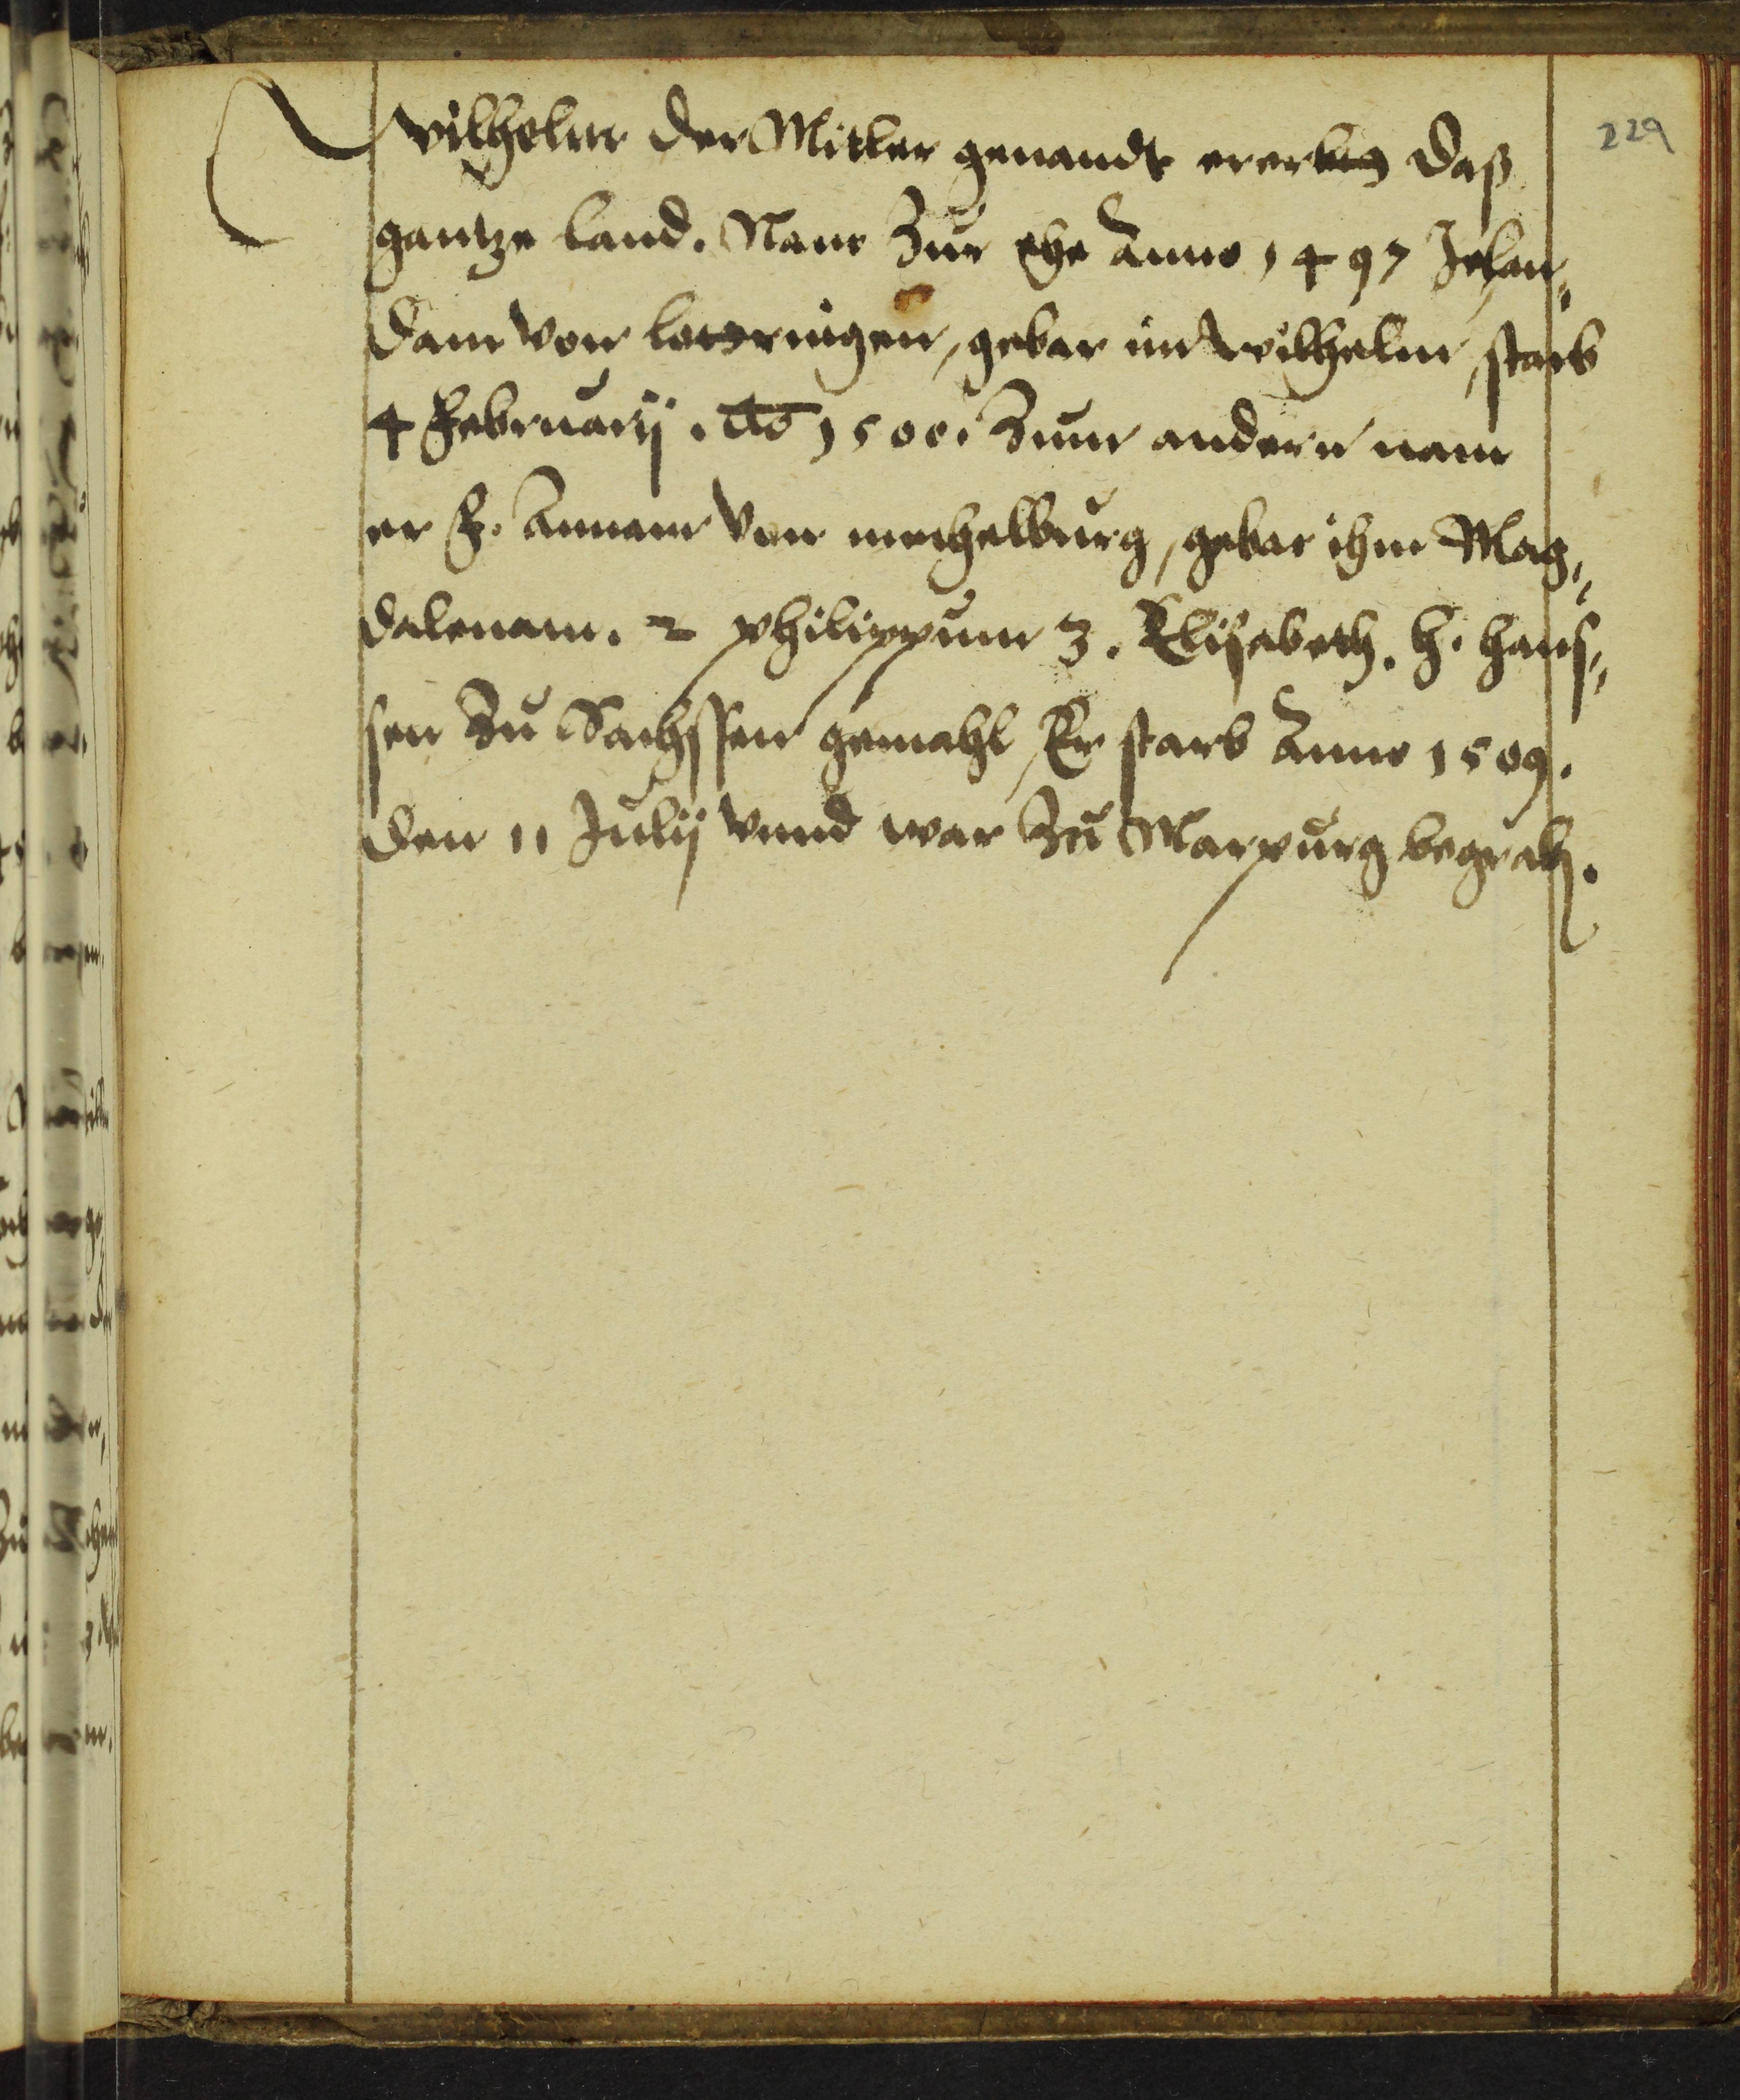 229
Wilhelm der Mitler genandt ererbtt daß
gantze land. Nam Zur ehe Anno 1497 Jolan¬
dam von lotteringen, gebar im Wilhelm, starb
4 Februarij. Ao 1500. Zum andern nam
er F. Annam von mechelburg, gebar ihm Mag¬
dalenam. 2 philippum 3. Elisabeth. h. hans¬
sen Zu Sachssen gemahl, Er starb Anno 1509.
den 11 Julij vnnd war Zu Marpurg begrab.